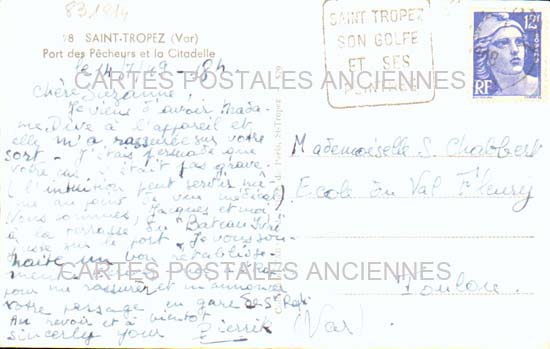 831914
18 SAINT-TROPEZ (Var)
Port des Pêcheurs et la Citadelle
SAINT TROPEZ
SON GOLFE
ET SES
12F
RF
CARTES POSTALES ANCIENNES
Chère Suzanne,
Je viens d'avoir Mada-
me Dive à l'appareil et
elle m'a rassurée sur votre
sort - J'étais persuadé que
votre cas n'était pas grave
(l'intuition peut servir mê-
me au point de vue médical)
Nous sommes, Jacques et moi
à la terrasse du "Bateau Ivre"
sur le port. Je vous sou-
haite un bon rétablisse-
ment
pour me rassurer et m'annoncer
votre passage en gare de St Raph.
Au revoir et à bientôt
Sincerly your Pierrik
Mademoiselle S. Chabbert
Ecole du Val Fleury
Toulon.
(Var)
CARTES POSTALES ANCIENNES